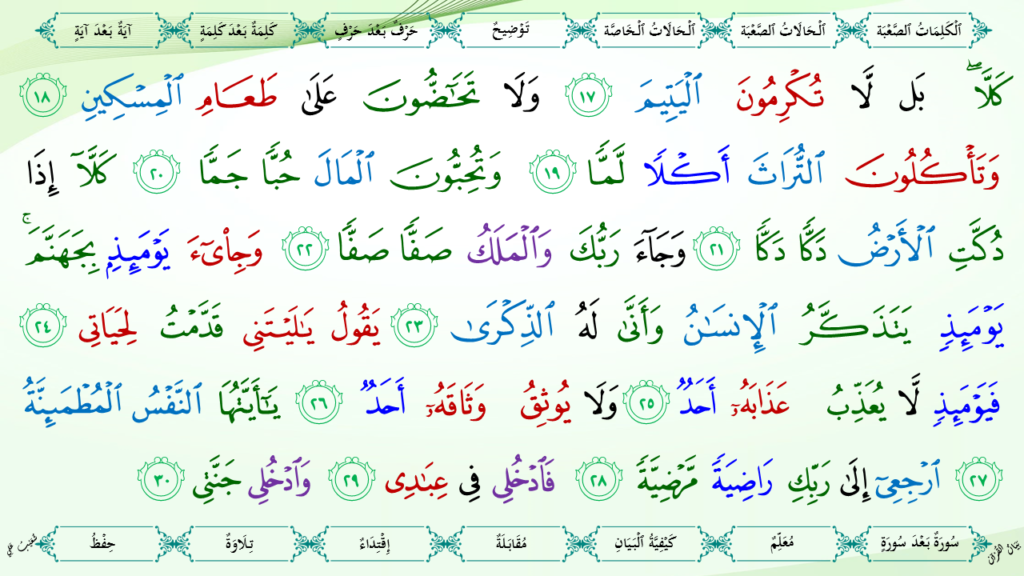 اَلْكَلِمَاتُ الصَّعْبَة اَلْحَالَاتُ الصَّعْبَة اَلْحَالَاتُ الْخَاصَّة تَوْضِيحٌ حَرْفٌ بَعْدَ حَرْفٍ كَلِمَةٌ بَعْدَ كَلِمَةٍ آيَةٌ بَعْدَ آيَةٍ
كَلَّاۖ بَل لَّا تُكْرِمُونَ ٱلْيَتِيمَ ١٧ وَلَا تَحَـٰٓضُّونَ عَلَىٰ طَعَامِ ٱلْمِسْكِينِ ١٨
وَتَأْكُلُونَ ٱلتُّرَاثَ أَكْلًا لَّمًّا ١٩ وَتُحِبُّونَ ٱلْمَالَ حُبًّا جَمًّا ٢٠ كَلَّآ إِذَا
دُكَّتِ ٱلْأَرْضُ دَكًّا دَكًّا ٢١ وَجَآءَ رَبُّكَ وَٱلْمَلَكُ صَفًّا صَفًّا ٢٢ وَجِا۟ىٓءَ يَوْمَئِذٍۭ بِجَهَنَّمَۚ
يَوْمَئِذٍ يَتَذَكَّرُ ٱلْإِنسَـٰنُ وَأَنَّىٰ لَهُ ٱلذِّكْرَىٰ ٢٣ يَقُولُ يَـٰلَيْتَنِى قَدَّمْتُ لِحَيَاتِى ٢٤
فَيَوْمَئِذٍ لَّا يُعَذِّبُ عَذَابَهُۥٓ أَحَدٌ ٢٥ وَلَا يُوثِقُ وَثَاقَهُۥٓ أَحَدٌ ٢٦ يَـٰٓأَيَّتُهَا ٱلنَّفْسُ ٱلْمُطْمَئِنَّةُ
٢٧ ٱرْجِعِىٓ إِلَىٰ رَبِّكِ رَاضِيَةً مَّرْضِيَّةً ٢٨ فَٱدْخُلِى فِى عِبَـٰدِى ٢٩ وَٱدْخُلِى جَنَّتِى ٣٠
سُورَةٌ بَعْدَ سُورَةٍ مُعَلِّمٌ كَيْفِيَّةُ الْبَيَانِ مُقَابَلَةٌ إِقْتِدَاءٌ تِلَاوَةٌ حِفْظٌ
بَيَانُ الْقُرْآن